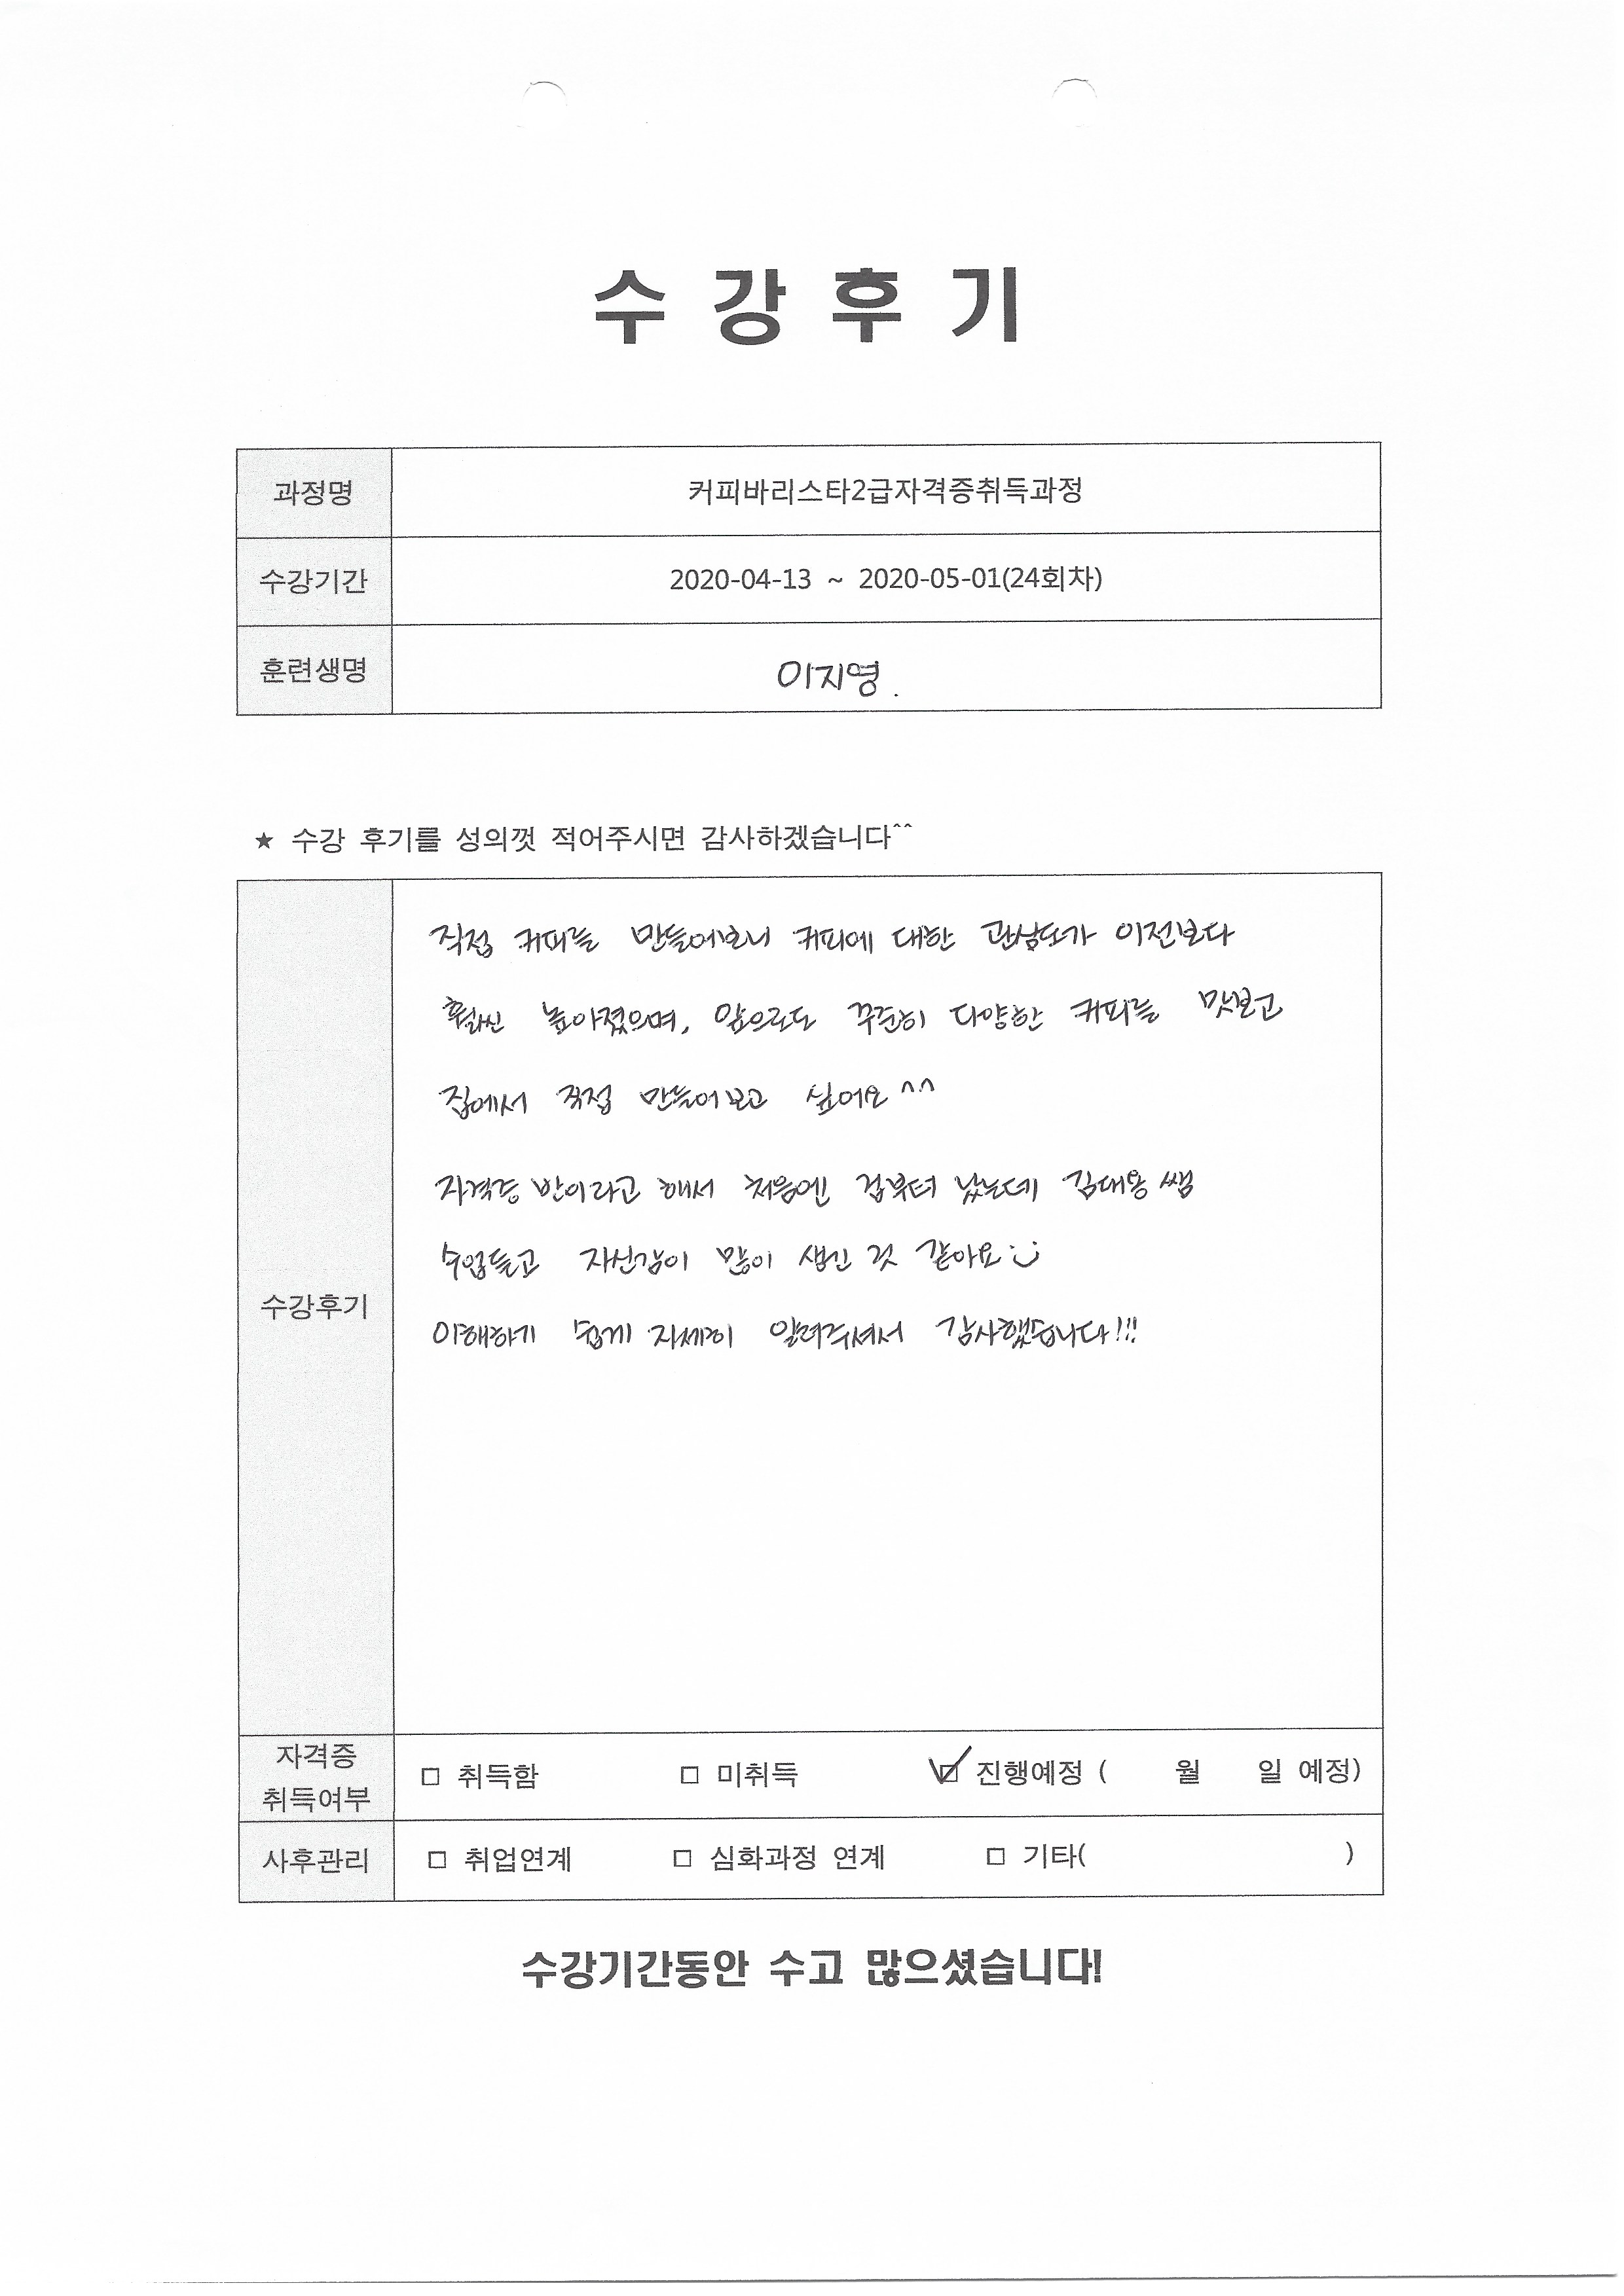 수 강 후 기
과정명 커피바리스타2급자격증취득과정
수강기간 2020-04-13 ~ 2020-05-01(24회차)
훈련생명 이지영.
★ 수강 후기를 성의껏 적어주시면 감사하겠습니다^^
직접 커피를 만들어보니 커피에 대한 관심도가 이전보다
훨씬 높아졌으며, 앞으로도 꾸준히 다양한 커피를 맛보고
집에서 직접 만들어보고 싶어요^^
자격증 반이라고 해서 처음엔 겁부터 났는데 김대용 쌤
수업듣고 자신감이 많이 생긴 것 같아요
이해하기 쉽게 자세히 알려주셔서 감사했습니다!!!
수강후기
자격증
취득여부
□ 취득함 □ 미취득 ☑ 진행예정 ( 월 일 예정)
사후관리 □ 취업연계 □ 심화과정 연계 □ 기타( )
수강기간동안 수고 많으셨습니다!